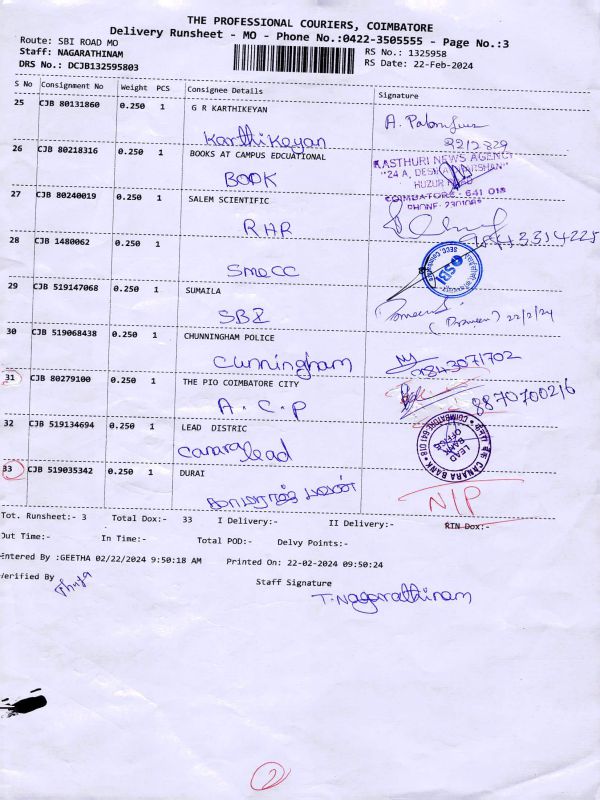 THE PROFESSIONAL COURIERS, COIMBATORE
Delivery Runsheet - MO - Phone No.:0422-3505555 - Page No.:3
Route: SBI ROAD MO
RS No.: 1325958
Staff: NAGARATHINAM
RS Date: 22-Feb-2024
DRS No.: DCJB132595803
S No Consignment No Weight PCS Consignee Details Signature
25 CJB 80131860 0.250 1 G R KARTHIKEYAN
Karthikeyan
26 CJB 80218316 0.250 1 BOOKS AT CAMPUS EDCUATIONAL
KASTHURI NEWS AGENCY
BOOK
HUZUR ROAD
COIMBATORE - 641 018
27 CJB 80240019 0.250 1 SALEM SCIENTIFIC
RHR
9843314225
28 CJB 1480062 0.250 1
SMECC
SBI
29 CJB 519147068 0.250 1 SUMAILA
SBI
(Praveen) 22/2/24
30 CJB 519068438 0.250 1 CHUNNINGHAM POLICE
Cunningham
9843071702
31 CJB 80279100 0.250 1 THE PIO COIMBATORE CITY
A.C.P
8870700216
32 CJB 519134694 0.250 1 LEAD DISTRIC
Canara lead
LEAD BANK OFFICE
CANARA BANK * COIMBATORE 641 018
33 CJB 519035342 0.250 1 DURAI
N/P
Tot. Runsheet:- 3 Total Dox:- 33 I Delivery:- II Delivery:- RIN Dox:-
Out Time:- In Time:- Total POD:- Delvy Points:-
Entered By :GEETHA 02/22/2024 9:50:18 AM Printed On: 22-02-2024 09:50:24
Verified By
Staff Signature
T.Nagarathinam
2